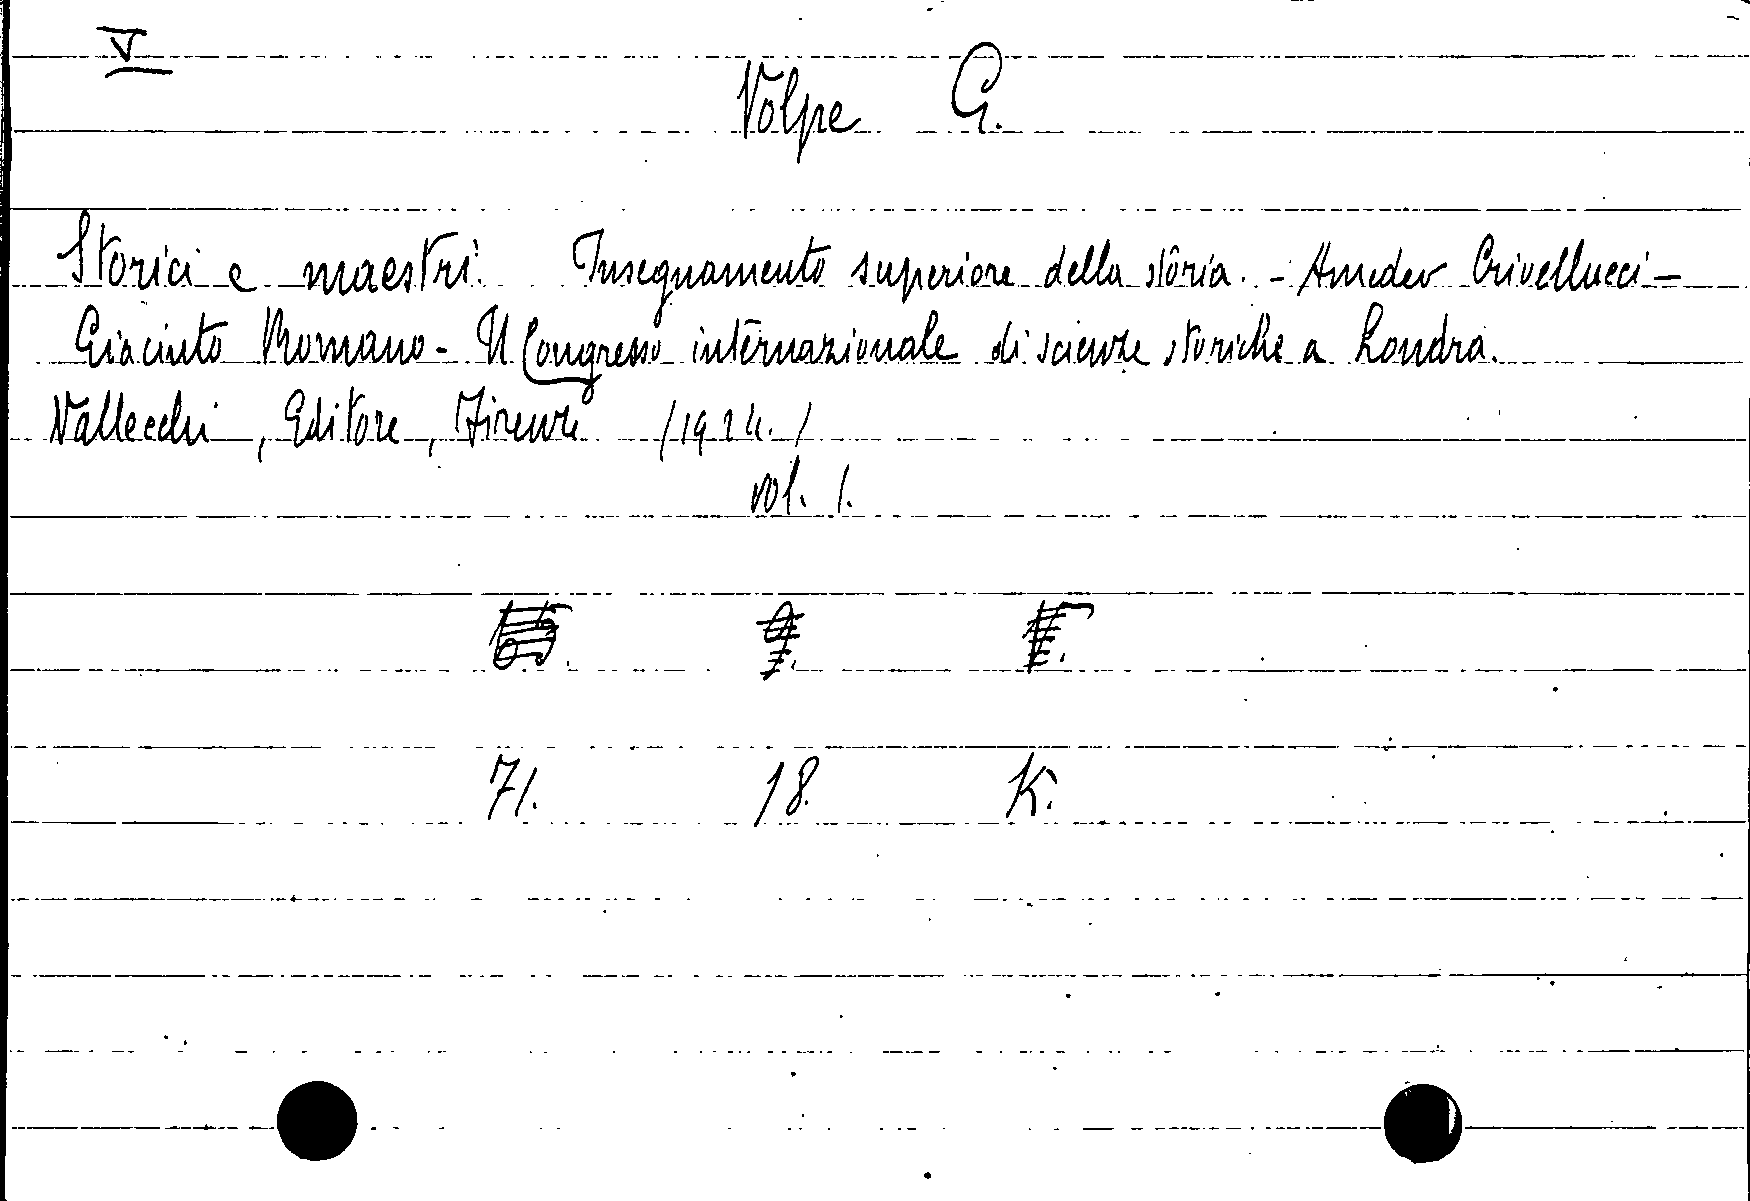 V
Volpe G.
Storici e maestri. Insegnamento superiore della storia. - Amedeo Crivellucci -
Giacinto Romano - Il Congresso internazionale di scienze storiche a Londra.
Vallecchi, Editore, Firenze /1924./
vol. 1.
71. 18. K.